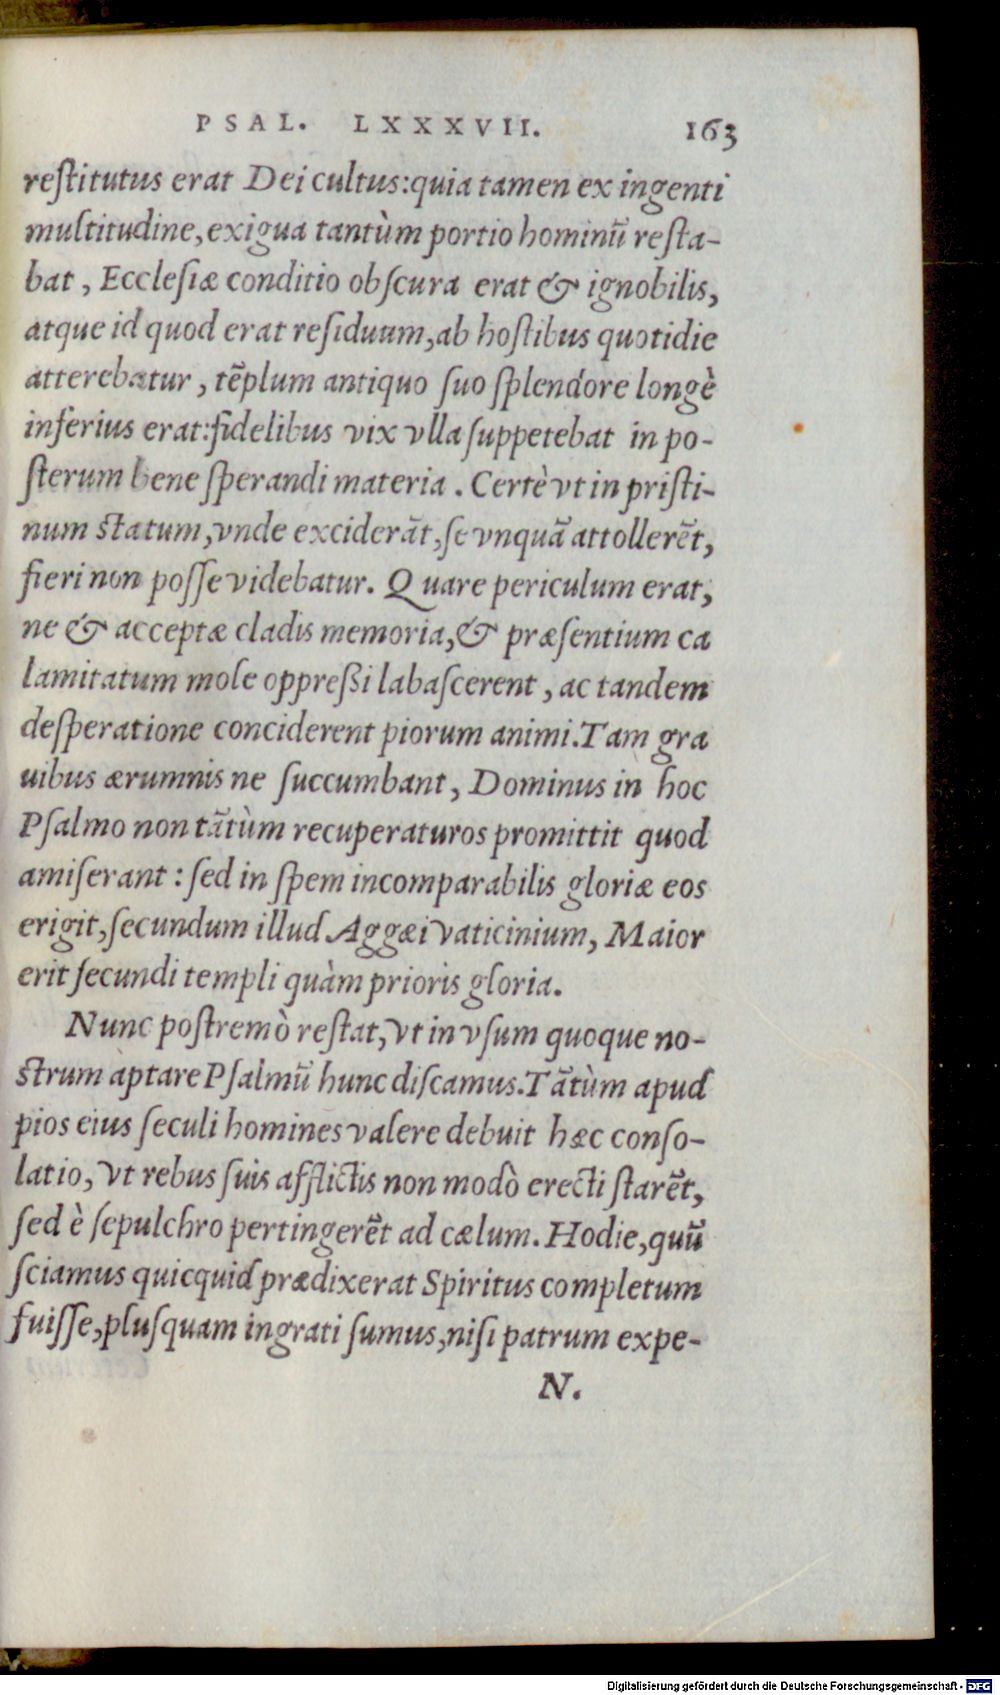 PSAL. LXXXVII. 163
reſtitutus erat Dei cultus: quia tamen ex ingenti
multitudine, exigua tantùm portio hominū reſta-
bat, Eccleſiæ conditio obſcura erat & ignobilis,
atque id quod erat reſiduum, ab hoſtibus quotidie
atterebatur, tēplum antiquo ſuo ſplendore longè
inferius erat: fidelibus vix vlla ſuppetebat in po-
ſterum bene ſperandi materia. Certè vt in priſti-
num ſtatum, vnde exciderāt, ſe vnquā attollerēt,
fieri non poſſe videbatur. Quare periculum erat,
ne & acceptæ cladis memoria, & præſentium ca
lamitatum mole oppreßi labaſcerent, ac tandem
deſperatione conciderent piorum animi. Tam gra
uibus ærumnis ne ſuccumbant, Dominus in hoc
Pſalmo non tātùm recuperaturos promittit quod
amiſerant: ſed in ſpem incomparabilis gloriæ eos
erigit, ſecundum illud Aggæi vaticinium, Maior
erit ſecundi templi quàm prioris gloria.
Nunc poſtremò reſtat, vt in vſum quoque no-
ſtrum aptare Pſalmū hunc diſcamus. Tātùm apud
pios eius ſeculi homines valere debuit hæc conſo-
latio, vt rebus ſuis afflictis non modò erecti ſtarēt,
ſed è ſepulchro pertingerēt ad cælum. Hodie, quū
ſciamus quicquid prædixerat Spiritus completum
fuiſſe, pluſquam ingrati ſumus, niſi patrum expe-
N.
Digitalisierung gefördert durch die Deutsche Forschungsgemeinschaft - DFG